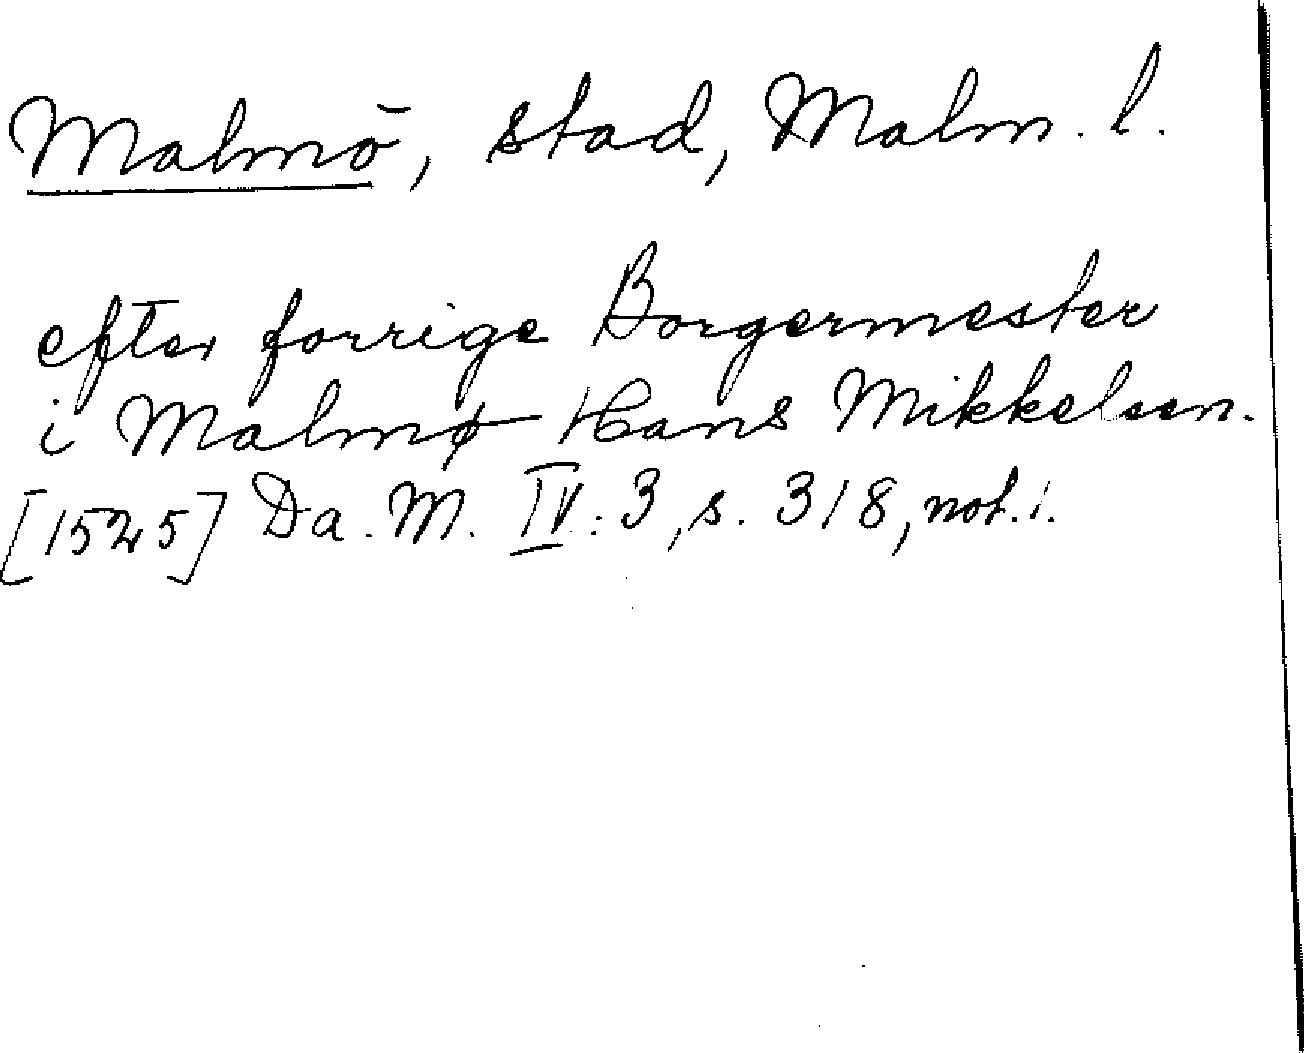 Malmö, stad, Malm. l.
efter forrige Borgermester
i Malmø Hans Mikkelsen.
[1525] Da. M. IV: 3, s. 318, not. 1.